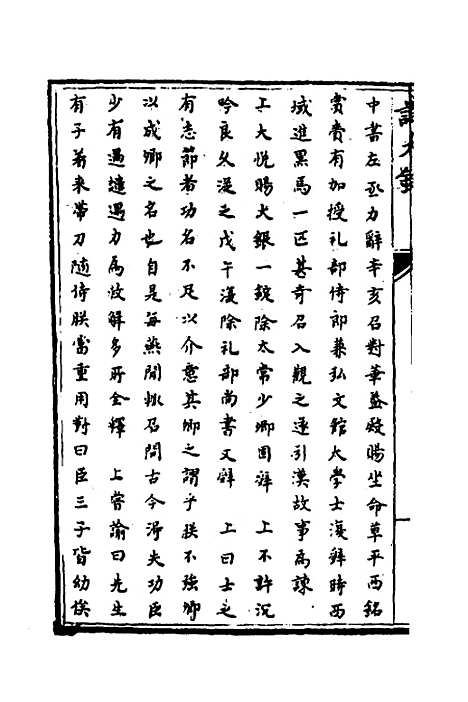 中書左丞力辭辛亥召對華葢殿賜坐命草平西銘
賞賚有加授礼部侍郎兼弘文館大學士復辤時西
域進黒馬一匹甚奇召入觀之遂引漢故事為諫
上大悦賜大銀一錠除太常少卿固辤　上不許沉
吟良久從之戊午復除礼部尚書又辤　上曰士之
有志節者功名不足以介意其卿之謂乎朕不強卿
以成卿之名也自是每燕閒輒召問古今得失功臣
少有過譴遇力為救解多所全釋　上嘗諭曰先生
有子着来帶刀随侍朕當重用對曰臣三子皆幼俟